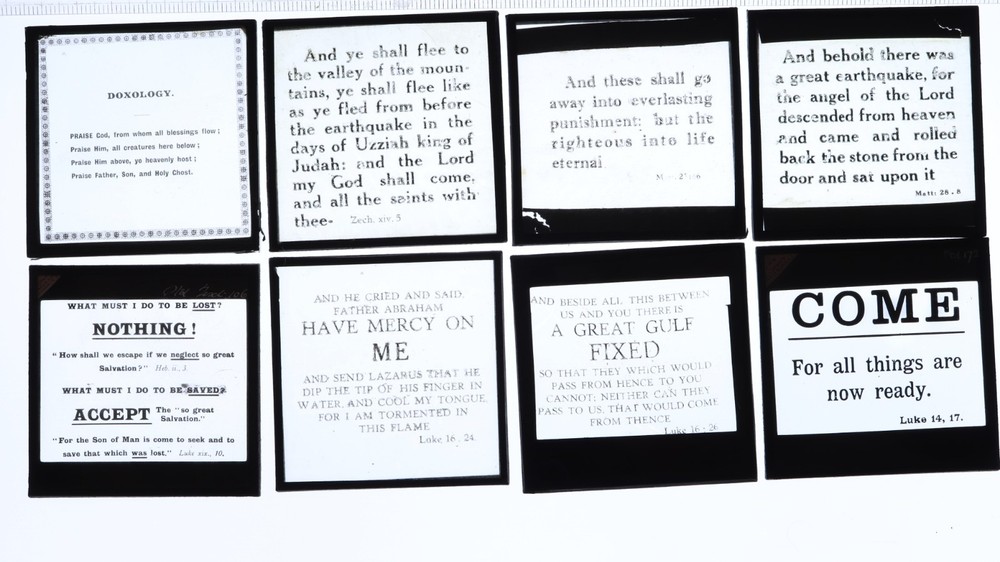 DOXOLOGY.
PRAISE God, from whom all blessings flow;
Praise Him, all creatures here below;
Praise Him above, ye heavenly host;
Praise Father, Son, and Holy Ghost.
And ye shall flee to
the valley of the moun-
tains, ye shall flee like
as ye fled from before
the earthquake in the
days of Uzziah king of
Judah: and the Lord
my God shall come,
and all the saints with
thee- Zech. xiv. 5
And these shall go
away into everlasting
punishment: but the
righteous into life
eternal
And behold there was
a great earthquake, for
the angel of the Lord
descended from heaven
and came and rolled
back the stone from the
door and sat upon it
Matt: 28 . 8
WHAT MUST I DO TO BE LOST?
NOTHING!
"How shall we escape if we neglect so great
Salvation?" Heb. ii., 3.
WHAT MUST I DO TO BE SAVED?
ACCEPT The "so great
Salvation."
"For the Son of Man is come to seek and to
save that which was lost." Luke xix., 10.
AND HE CRIED AND SAID.
FATHER ABRAHAM
HAVE MERCY ON
ME
AND SEND LAZARUS THAT HE
DIP THE TIP OF HIS FINGER IN
WATER, AND COOL MY TONGUE.
FOR I AM TORMENTED IN
THIS FLAME
Luke 16 . 24.
AND BESIDE ALL THIS BETWEEN
US AND YOU THERE IS
A GREAT GULF
FIXED
SO THAT THEY WHICH WOULD
PASS FROM HENCE TO YOU
CANNOT: NEITHER CAN THEY
PASS TO US, THAT WOULD COME
FROM THENCE
Luke 16 - 26
COME
For all things are
now ready.
Luke 14, 17.